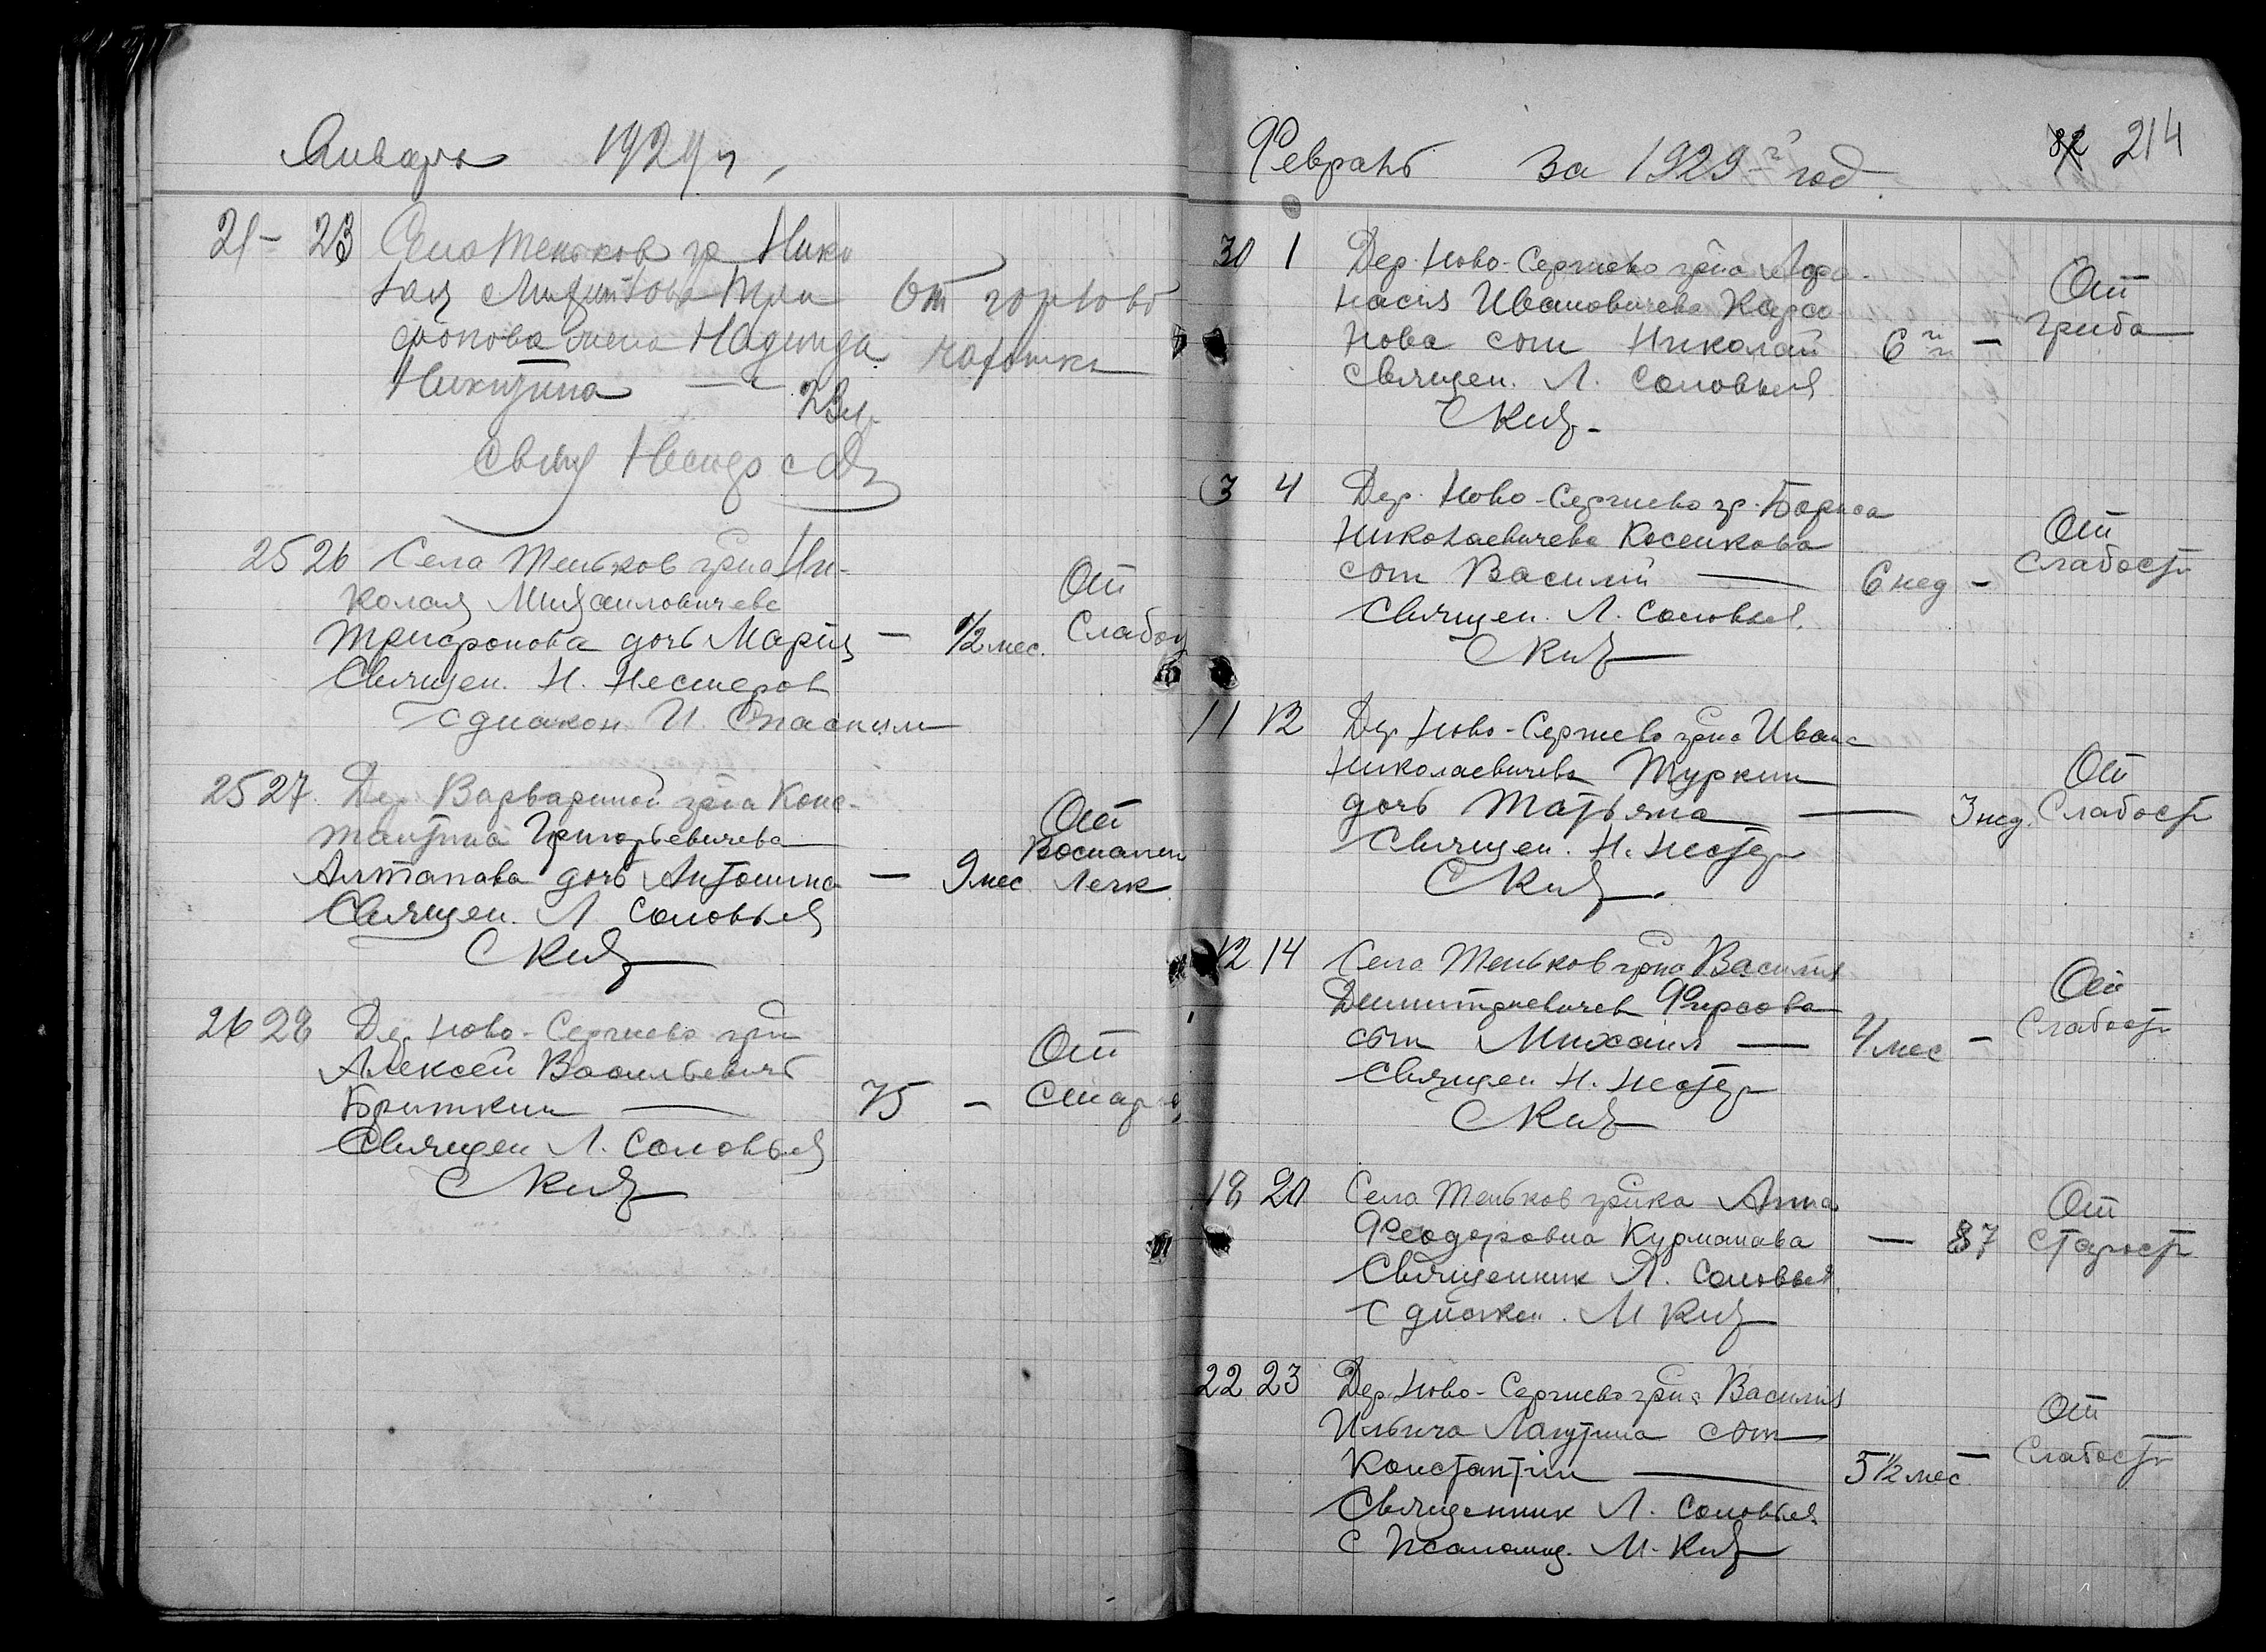 Январь 1929 г.
21 - 23 Села Теньков гр. Нико
лая Михайлова Три
фонова жена Надежда
Никитина — 23 л. От горловой
чахотки
свящ Нестеров с
25 26 Села Теньков гр-на Ни-
колая Михаиловичева
Трифонова дочь Мария — 1/2 мес. От Слабос
Священ. Н. Нестеров
с диакон. И. Спаским
25 27 Дер. Варвариной гр-на Конс-
тантина Григорьевичева
Алтапава дочь Антонина — 9 мес. От Воспален Легк
Священ. Л. Соловьев
С Киз
26 28 Дер. Ново-Сергиево гр-н
Алексей Васильевичь
Бриткин — 75 - От Старо
Священ Л. Соловьев
С Киз
Февраль за 1929 г. год. 32 214
30 1 Дер. Ново-Сергиево гр-на Афа-
насия Ивановичева Карса
нова сын Николай 6 — От Гриба
Священ. Л. Соловьев
С Киз -
3 4 Дер. Ново-Сергиево гр. Бориса
Николаевичева Косенкова
сын Василий — 6 нед - От Слабости
Священ. Л. Соловьев.
С Киз
11 12 Дер. Ново-Сергиево гр-на Ивана
Николаевичева Туркин
дочь Татьяна — 3 нед. От Слабости
Священ. Н. Нестер
С Киз.
12 14 Села Теньков гр-на Василия
Димитриевичев Фирсова
сын Михаил — 4 мес - От Слабости
Священ Н. Нестер
С Киз
18 20 Села Теньков гр-нка Анна
Феодоровна Курманава — 87 От Старости
Священник Л. Соловьев.
с диакон. М Киз
22 23 Дер. Ново-Сергиево гр-на Василия
Ильича Лагутина сын
Константин — 5 1/2 мес. — От Слабости
Священник Л. Соловьев.
с Псаломщ. М. Киз